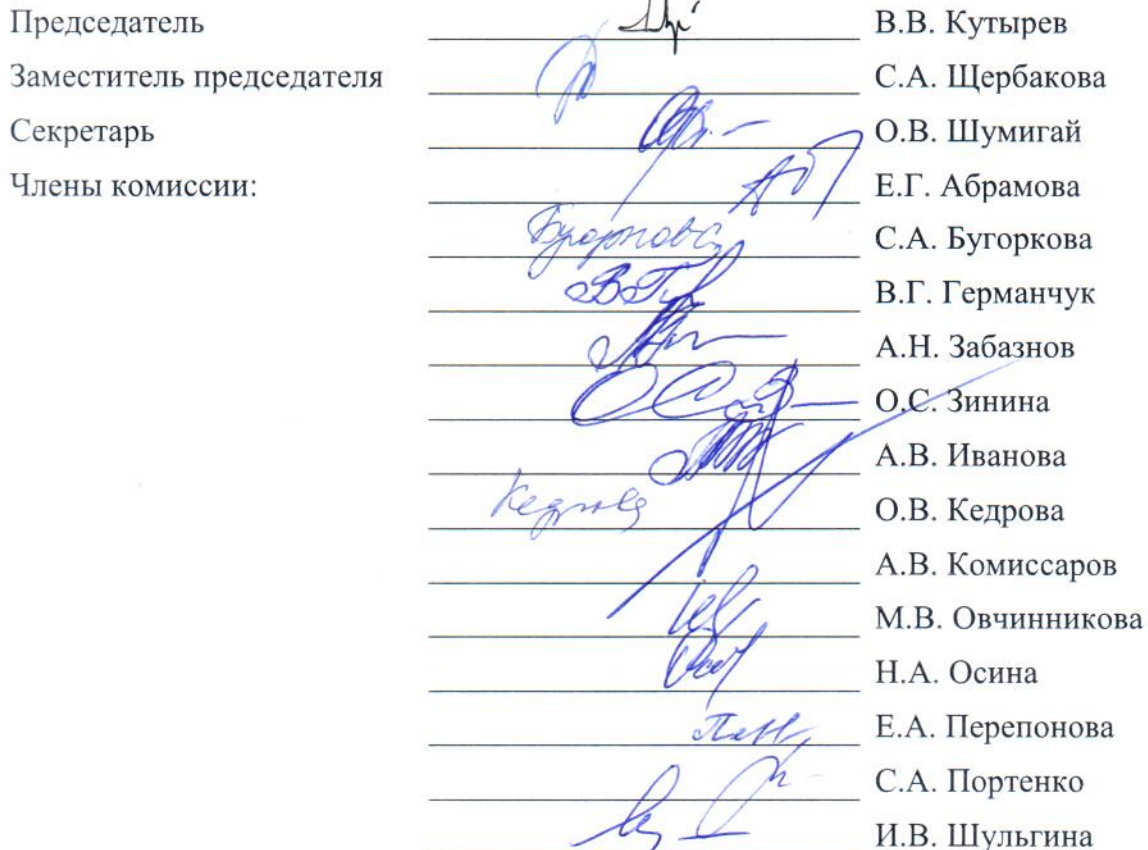 Председатель В.В. Кутырев
Заместитель председателя С.А. Щербакова
Секретарь О.В. Шумигай
Члены комиссии: Е.Г. Абрамова
Бугоркова С.А. Бугоркова
В.Г. Германчук
А.Н. Забазнов
О.С. Зинина
А.В. Иванова
Кедрова О.В. Кедрова
А.В. Комиссаров
М.В. Овчинникова
Н.А. Осина
Е.А. Перепонова
С.А. Портенко
И.В. Шульгина